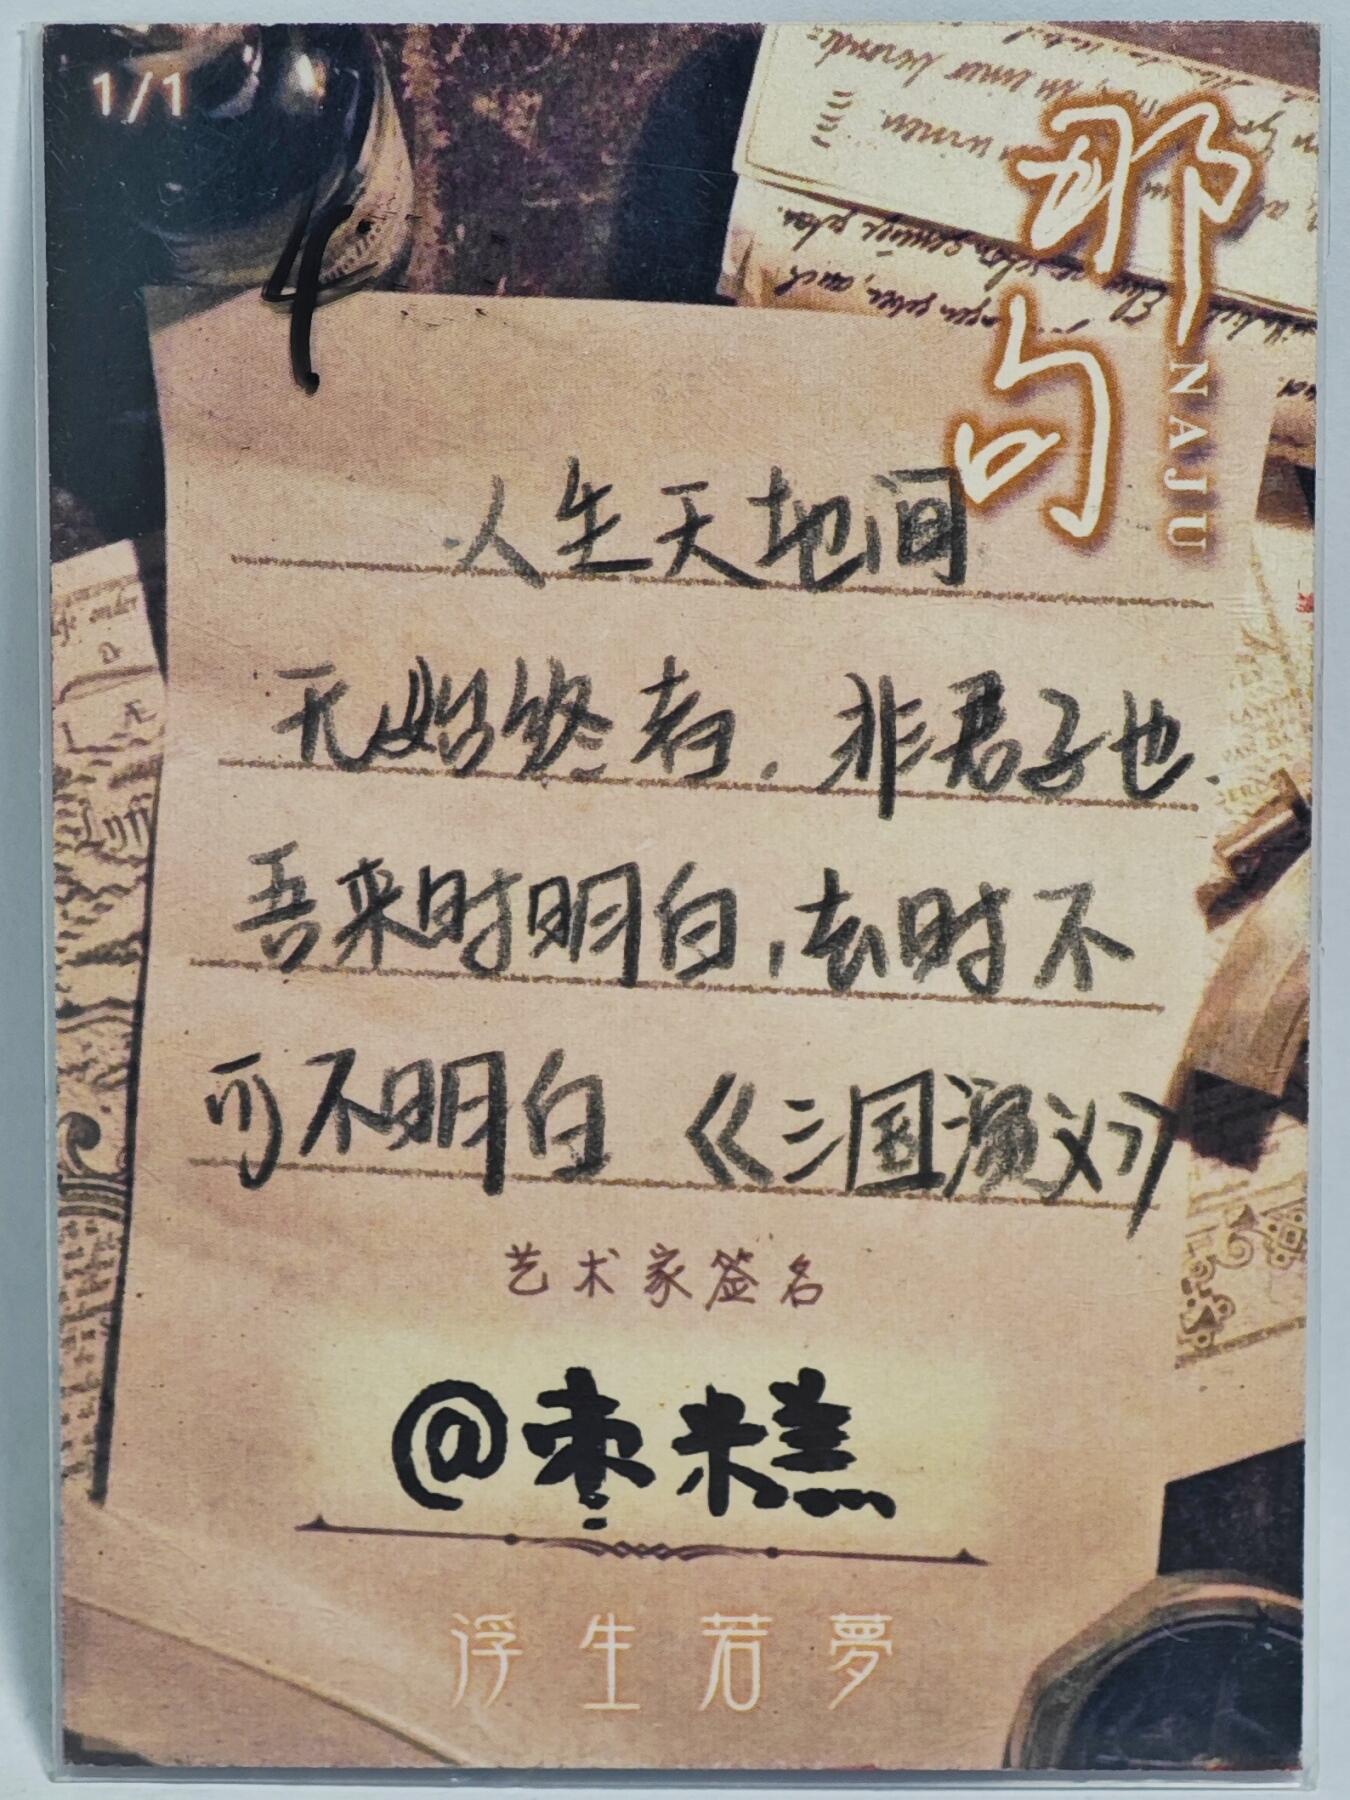 1/1
那句
NAJU
4
人生天地间
无始终者，非君子也.
吾来时明白，去时不
可不明白《三国演义》
艺术家签名
@枣米糕
浮生若夢